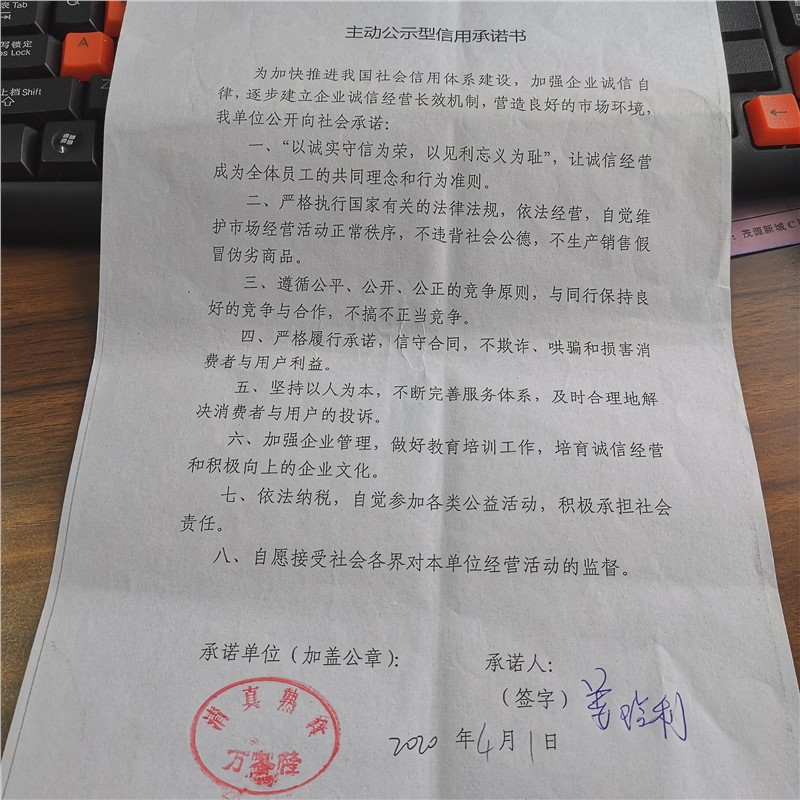 表 Tab
A
写锁定
ps Lock
上档 Shift
Z
茂源新城C
主动公示型信用承诺书
为加快推进我国社会信用体系建设，加强企业诚信自
律，逐步建立企业诚信经营长效机制，营造良好的市场环境，
我单位公开向社会承诺：
一、“以诚实守信为荣，以见利忘义为耻”，让诚信经营
成为全体员工的共同理念和行为准则。
二、严格执行国家有关的法律法规，依法经营，自觉维
护市场经营活动正常秩序，不违背社会公德，不生产销售假
冒伪劣商品。
三、遵循公平、公开、公正的竞争原则，与同行保持良
好的竞争与合作，不搞不正当竞争。
四、严格履行承诺，信守合同，不欺诈、哄骗和损害消
费者与用户利益。
五、坚持以人为本，不断完善服务体系，及时合理地解
决消费者与用户的投诉。
六、加强企业管理，做好教育培训工作，培育诚信经营
和积极向上的企业文化。
七、依法纳税，自觉参加各类公益活动，积极承担社会
责任。
八、自愿接受社会各界对本单位经营活动的监督。
承诺单位（加盖公章）：
承诺人：
（签字）
清真熟
万客隆
2020 年 4 月 1 日